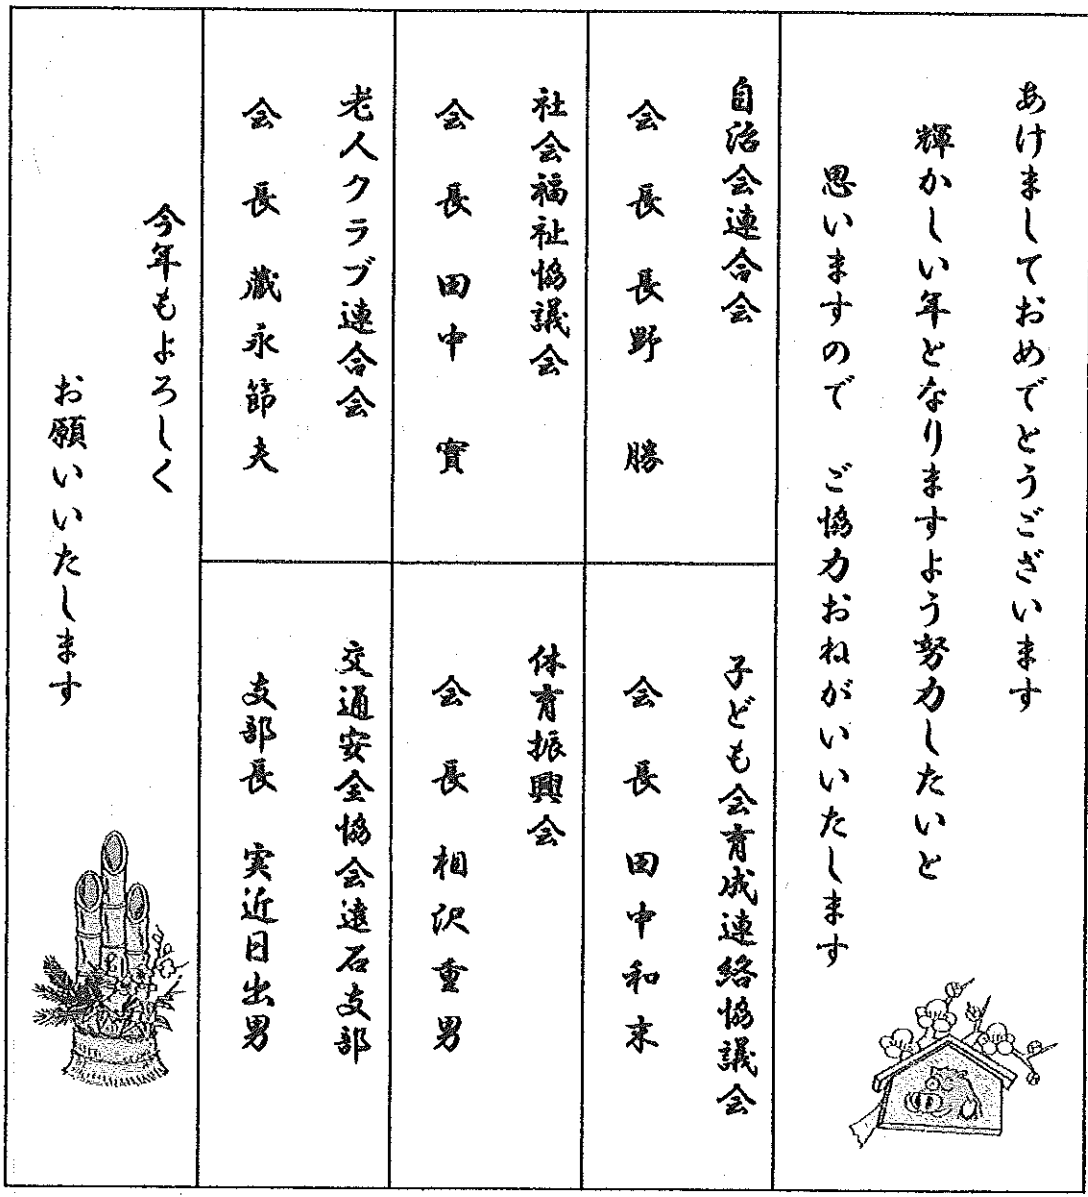 あけましておめでとうございます
輝かしい年となりますよう努力したいと
思いますので ご協力おねがいいたします
自治会連合会
会長 長野 勝
子ども会育成連絡協議会
会長 田中和末
社会福祉協議会
会長 田中 實
体育振興会
会長 相沢重男
老人クラブ連合会
会長 藏永節夫
交通安全協会遠石支部
支部長 実近日出男
今年もよろしく
お願いいたします